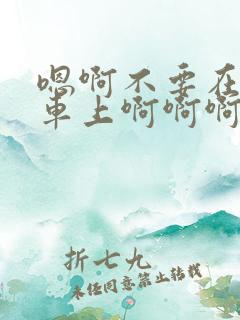 嗯啊不要在
車上啊啊啊
折七九
未经同意禁止转载